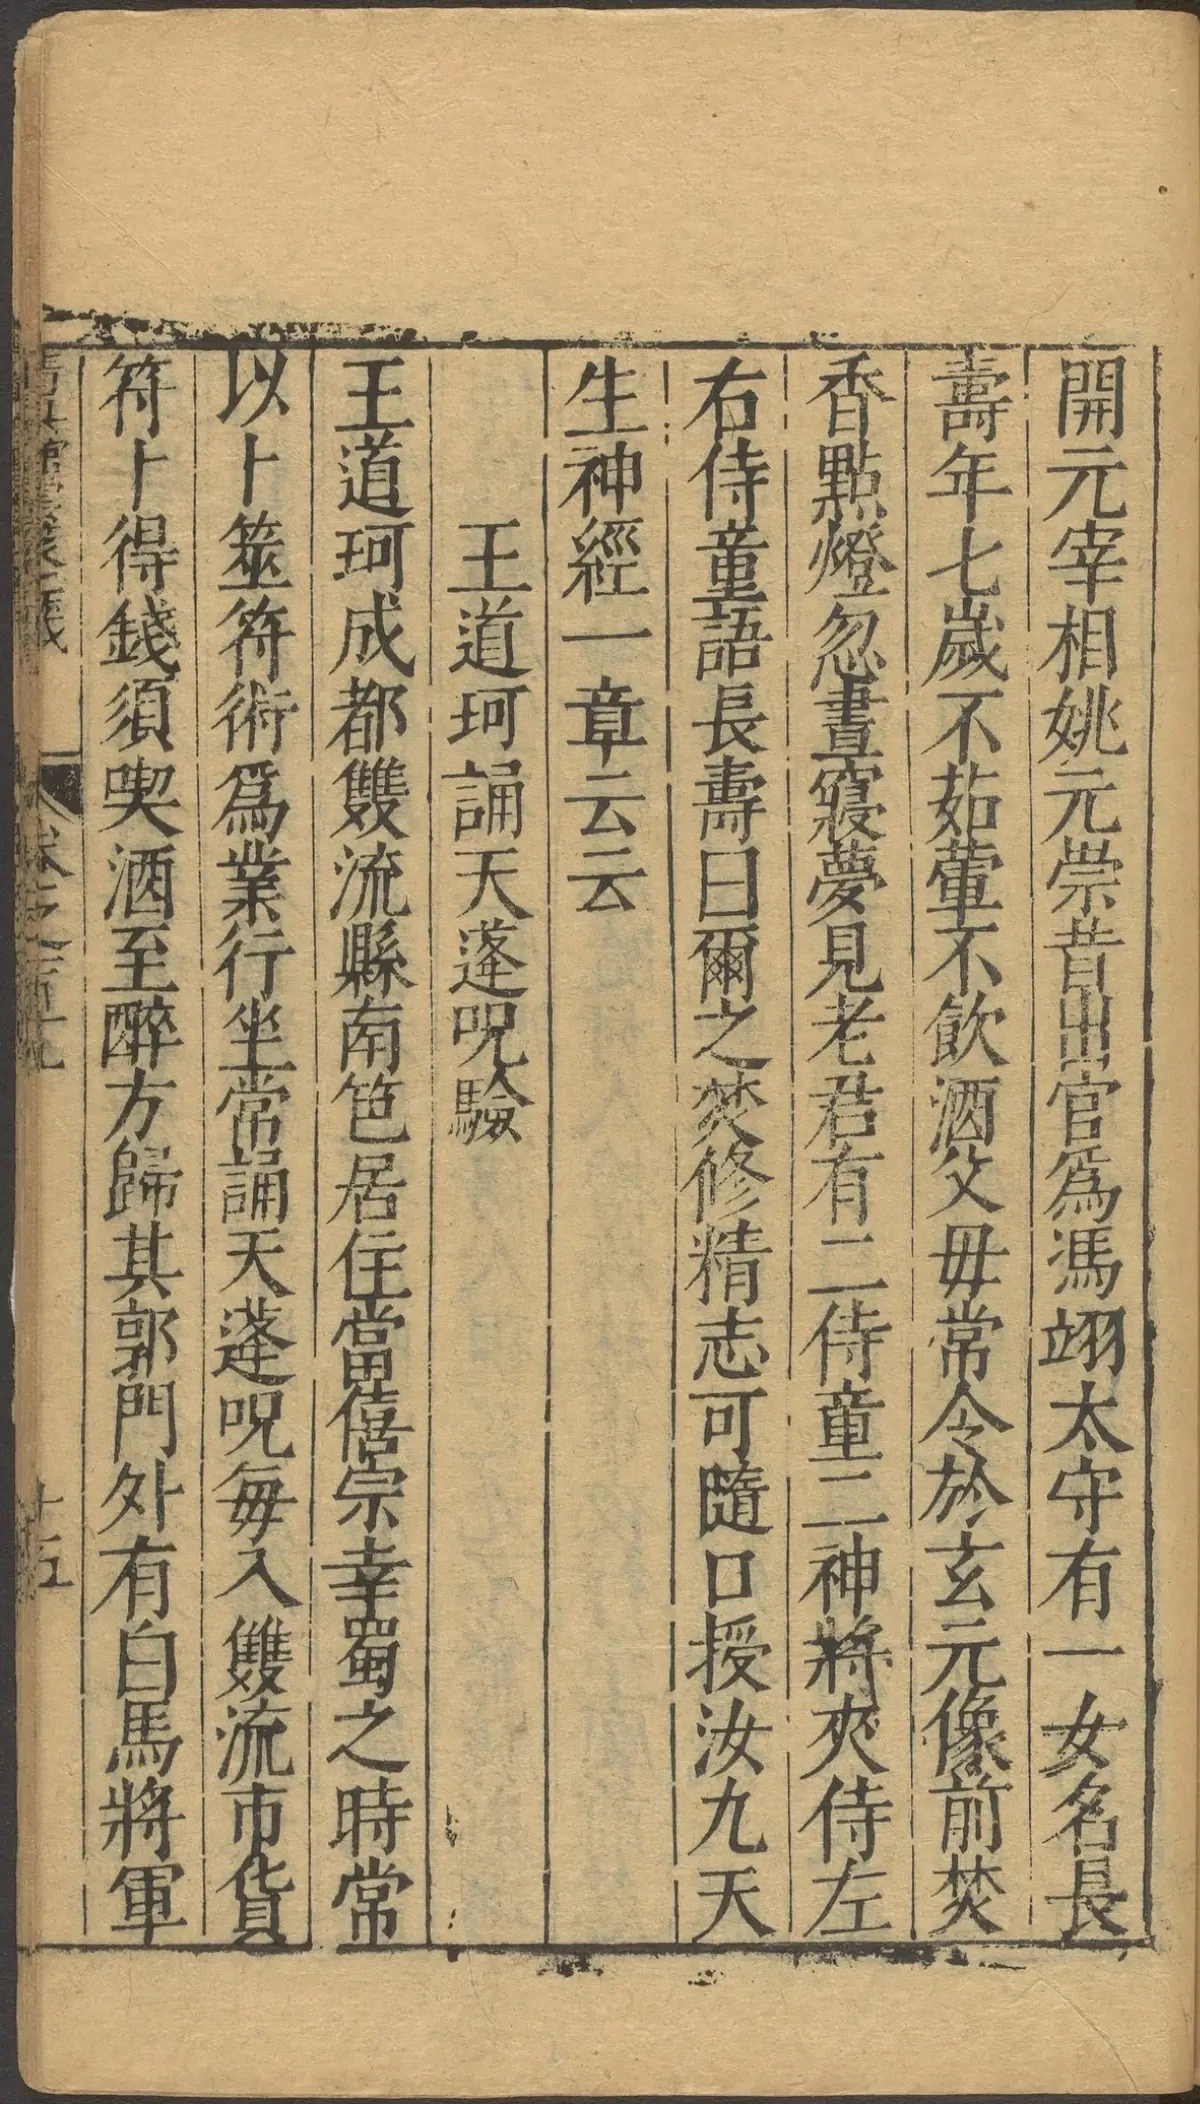 開元宰相姚元崇昔出官爲馮翊太守有一女名長
壽年七歲不茹葷不飲酒父毋常令於玄元像前焚
香點燈忽晝寢夢見老君有二侍童二神將夾侍左
右侍童語長壽曰爾之焚修精志可隨口授汝九天
生神經一章云云
王道珂誦天蓬呪驗
王道珂成都雙流縣南笆居住當僖宗幸蜀之時常
以卜筮符術爲業行坐常誦天蓬呪每入雙流市貨
符卜得錢須喫酒至醉方歸其郭門外有白馬將軍
卷之一百十九
十五